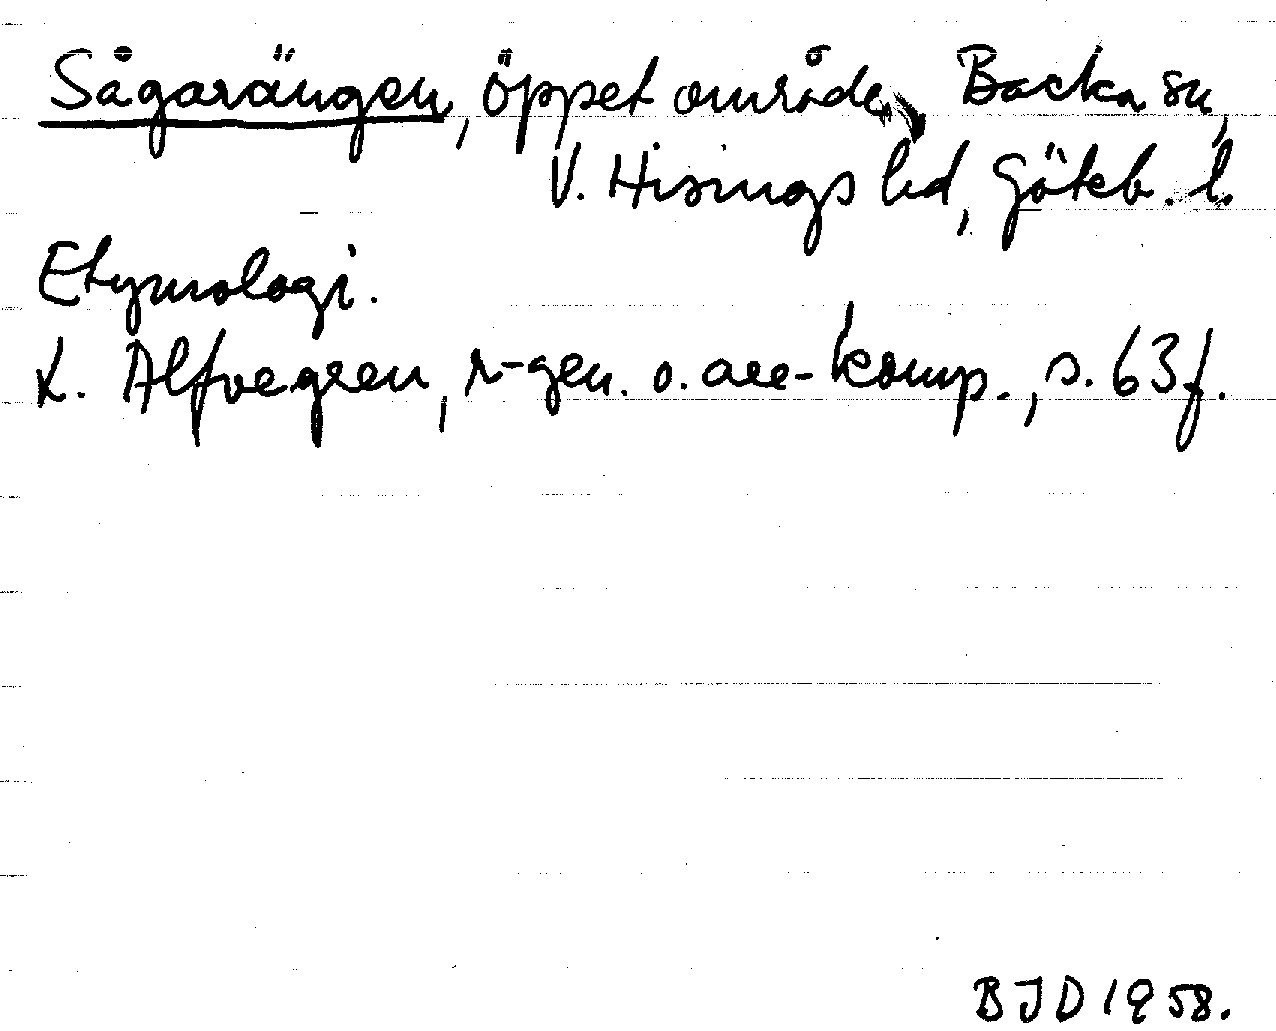 Sågarängen, öppet område, Backa sn,
V. Hisings hd, Göteb. l.
Etymologi.
L. Alfvegren, r-gen. o. are-komp., s. 63 f.
BJD 1958.